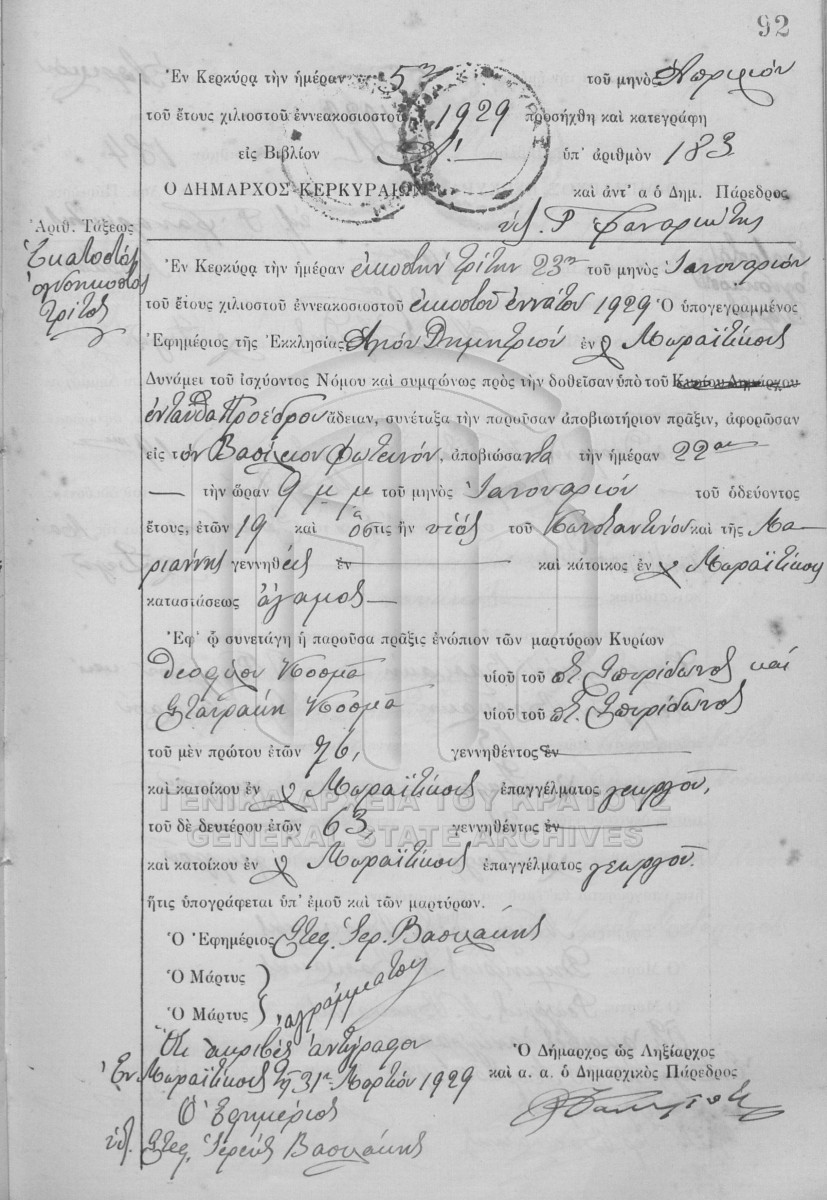 92
Ἐν Κερκύρᾳ τὴν ἡμέραν 5η τοῦ μηνὸς Ἀπριλίου
τοῦ ἔτους χιλιοστοῦ ἐννεακοσιοστοῦ 1929 προσήχθη καὶ κατεγράφη
εἰς Βιβλίον Α! ὑπ' ἀριθμὸν 183
Ο ΔΗΜΑΡΧΟΣ ΚΕΡΚΥΡΑΙΩΝ καὶ ἀντ' α ὁ Δημ. Πάρεδρος
ὑπ. Φαναριώτης
Ἀριθ. Τάξεως
Ἑκατοστὸς
ὀγδοηκοστὸς
τρίτος
Ἐν Κερκύρᾳ τὴν ἡμέραν εἰκοστὴν τρίτην 23ην τοῦ μηνὸς Ἰανουαρίου
τοῦ ἔτους χιλιοστοῦ ἐννεακοσιοστοῦ εἰκοστοῦ ἐννάτου 1929 Ὁ ὑπογεγραμμένος
Ἐφημέριος τῆς Ἐκκλησίας Ἁγίου Δημητρίου ἐν Μωραϊτίκοις
Δυνάμει τοῦ ἰσχύοντος Νόμου καὶ συμφώνως πρὸς τὴν δοθεῖσαν ὑπὸ τοῦ Κυρίου Δημάρχου
ἐνταῦθα Προέδρου ἄδειαν, συνέταξα τὴν παροῦσαν ἀποβιωτήριον πρᾶξιν, ἀφορῶσαν
εἰς τὸν Βασίλειον Φωτεινόν, ἀποβιώσαντα τὴν ἡμέραν 22αν
τὴν ὥραν 9 μ μ τοῦ μηνὸς Ἰανουαρίου τοῦ ὁδεύοντος
ἔτους, ἐτῶν 19 καὶ ὅστις ἦν υἱὸς τοῦ Κωνσταντίνου καὶ τῆς Μα
ριάννης γεννηθεὶς ἐν καὶ κάτοικος ἐν Μωραϊτίκοις
καταστάσεως ἄγαμος
Ἐφ' ᾧ συνετάγη ἡ παροῦσα πρᾶξις ἐνώπιον τῶν μαρτύρων Κυρίων
Θεοφίλου Κοσμᾶ υἱοῦ τοῦ ποτ. Σπυρίδωνος καὶ
Σταυράκη Κοσμᾶ υἱοῦ τοῦ ποτ. Σπυρίδωνος
τοῦ μὲν πρώτου ἐτῶν 76, γεννηθέντος ἐν
καὶ κατοίκου ἐν Μωραϊτίκοις ἐπαγγέλματος γεωργοῦ,
τοῦ δὲ δευτέρου ἐτῶν 63, γεννηθέντος ἐν
καὶ κατοίκου ἐν Μωραϊτίκοις ἐπαγγέλματος γεωργοῦ.
ἥτις ὑπογράφεται ὑπ' ἐμοῦ καὶ τῶν μαρτύρων.
Ὁ Ἐφημέριος Στεφ. Ἱερ. Βασιλάκης
Ὁ Μάρτυς
Ὁ Μάρτυς ἀγράμματοι
Ὅτι ἀκριβὲς ἀντίγραφον
Ἐν Μωραϊτίκοις τῇ 31η Μαρτίου 1929
Ὁ Ἐφημέριος
ὑπ. Στεφ. Ἱερεὺς Βασιλάκης
Ὁ Δήμαρχος ὡς Ληξίαρχος
καὶ α. α. ὁ Δημαρχικὸς Πάρεδρος
ΓΕΝΙΚΑ ΑΡΧΕΙΑ ΤΟΥ ΚΡΑΤΟΥΣ
GENERAL STATE ARCHIVES